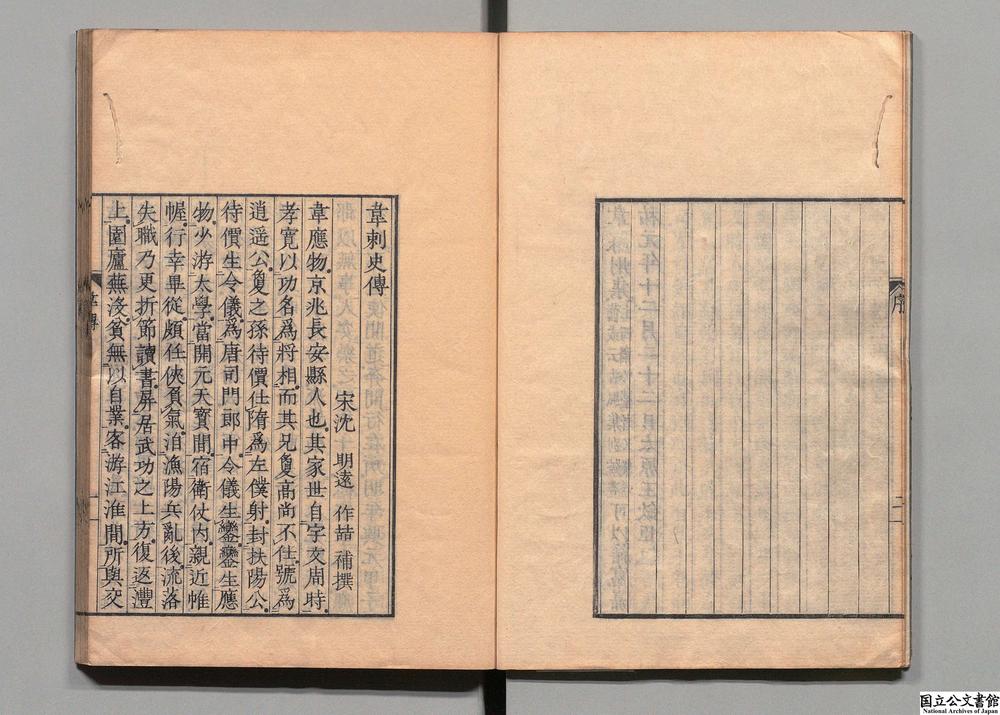 序
二
韋刺史傳
宋沈 明遠 作喆 補撰
韋應物京兆長安縣人也其家世自宇文周時
孝寬以功名爲將相而其兄夐高尚不仕號爲
逍遥公夐之孫待價仕隋爲左僕射封扶陽公
待價生令儀爲唐司門郎中令儀生鑾鑾生應
物少游太學當開元天寶間宿衛仗内親近帷
幄行幸畢從頗任俠負氣洎漁陽兵亂後流落
失職乃更折節讀書屏居武功之上方復返灃
上園廬蕪沒貧無以自業客游江淮間所與交
韋傳
一
国立公文書館
National Archives of Japan